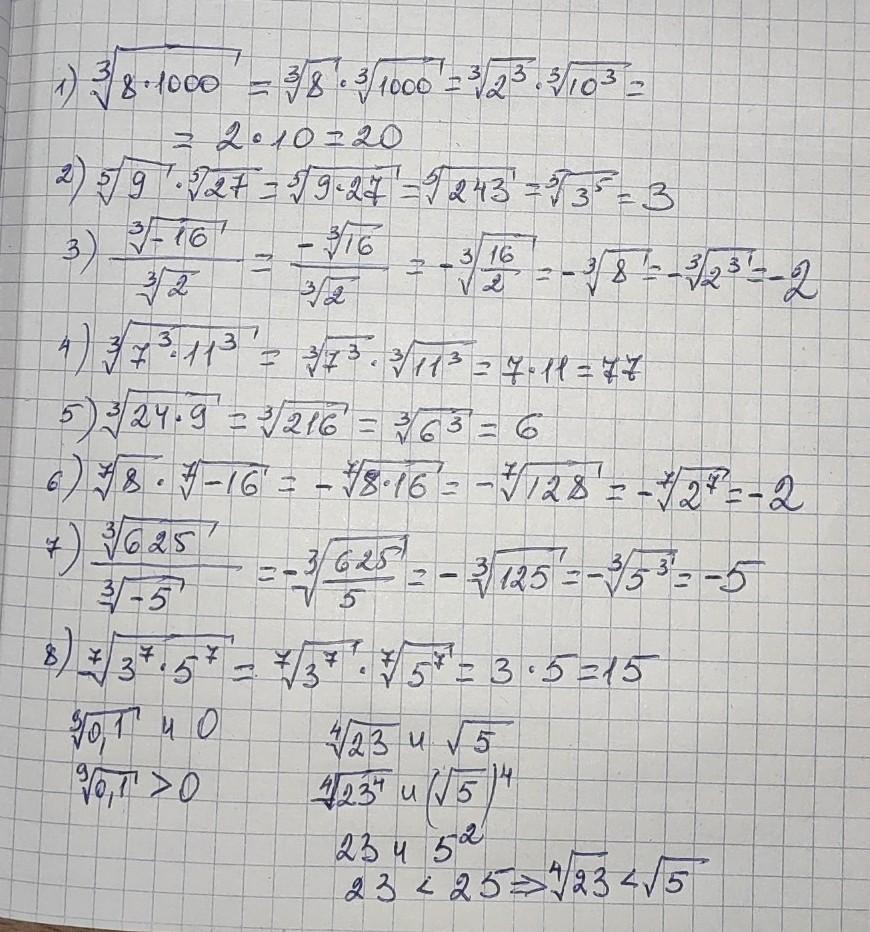 1) ∛(8·1000) = ∛8 · ∛1000 = ∛(2³) · ∛(10³) =
= 2·10 = 20
2) ⁵√9 · ⁵√27 = ⁵√(9·27) = ⁵√243 = ⁵√(3⁵) = 3
3) ∛(-16) / ∛2 = -∛16 / ∛2 = -∛(16/2) = -∛8 = -∛(2³) = -2
4) ∛(7³·11³) = ∛(7³) · ∛(11³) = 7·11 = 77
5) ∛(24·9) = ∛216 = ∛(6³) = 6
6) ⁷√8 · ⁷√(-16) = -⁷√(8·16) = -⁷√128 = -⁷√(2⁷) = -2
7) ∛625 / ∛(-5) = -∛(625/5) = -∛125 = -∛(5³) = -5
8) ⁷√(3⁷·5⁷) = ⁷√(3⁷) · ⁷√(5⁷) = 3·5 = 15
⁹√0,1 и 0
⁹√0,1 > 0
⁴√23 и √5
⁴√(23⁴) и (√5)⁴
23 и 5²
23 < 25 ⇒ ⁴√23 < √5